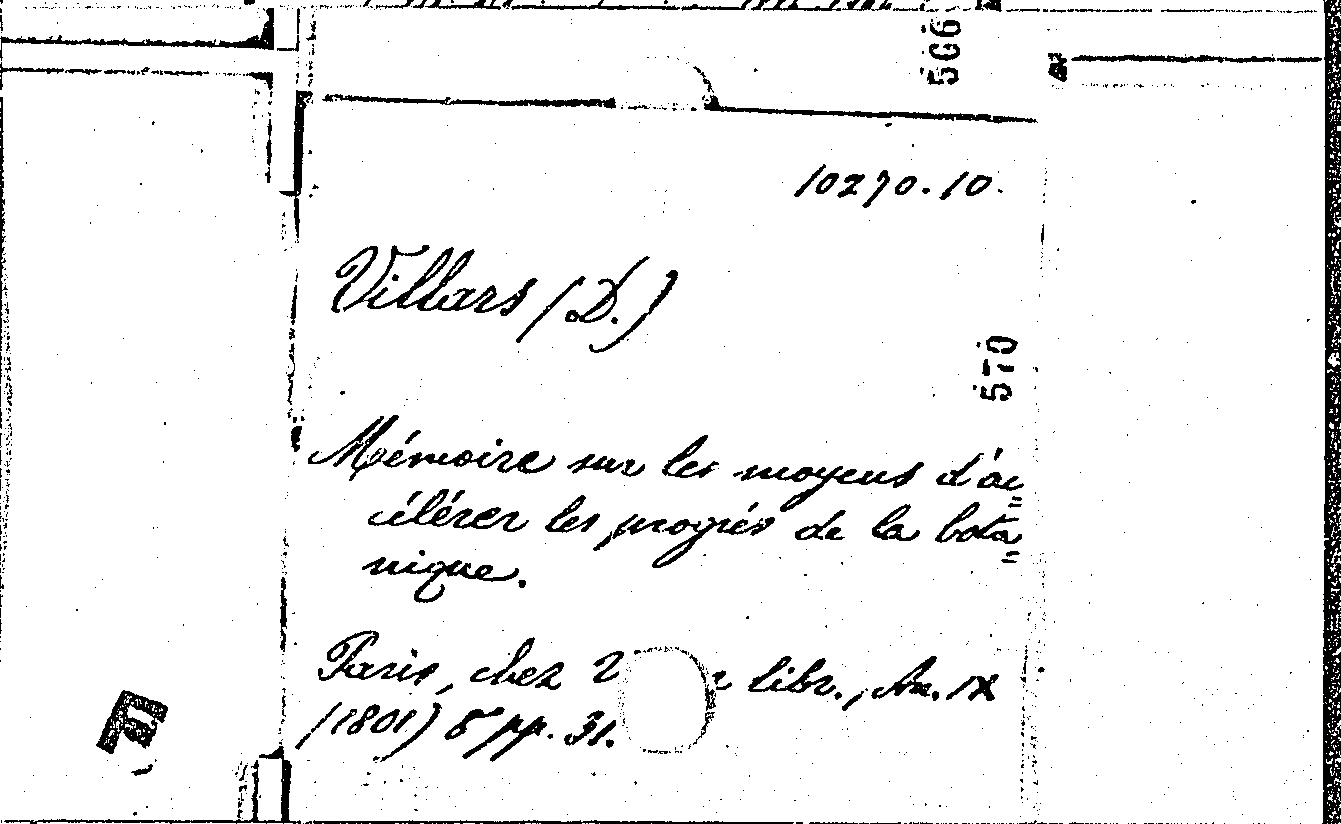 506
10270.10.
Villars (D.)
570
Mémoire sur les moyens d'ac=
célérer les progrès de la bota=
nique.
Paris, chez libr., An. IX
(1801) 8 pp. 31.
F